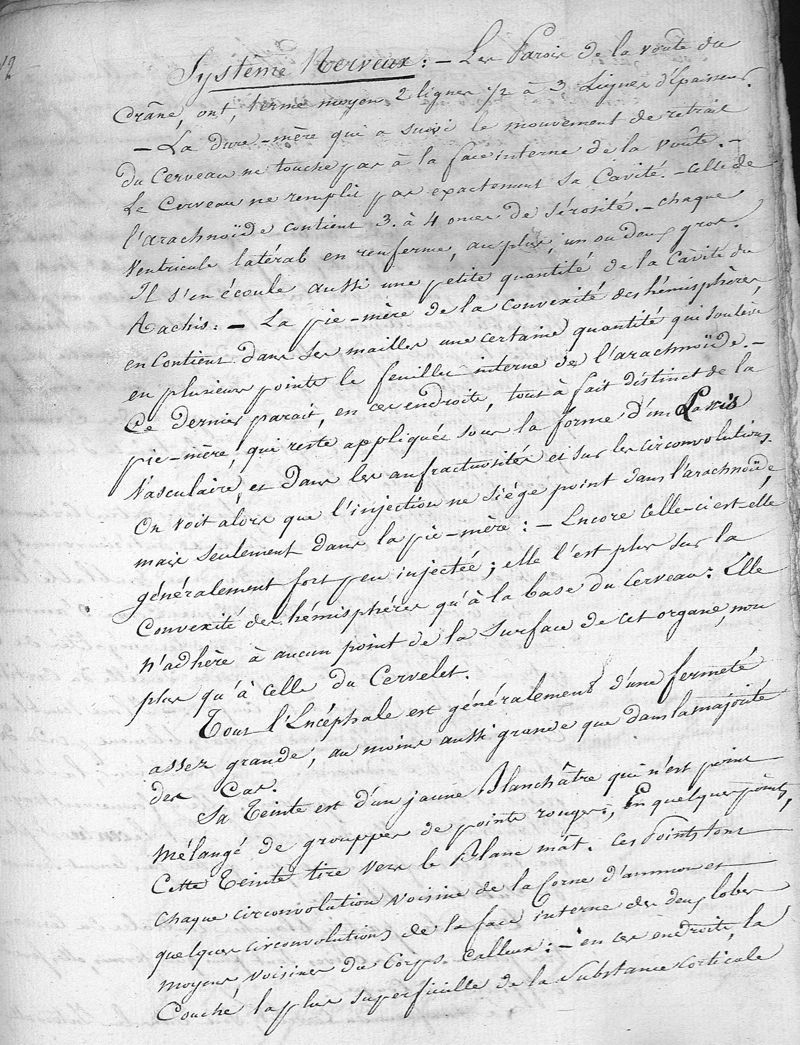 12
Système Nerveux : - Les Parois de la voute du
Crâne, ont, terme moyen 2 lignes 1/2 à 3 Lignes d'épaisseur.
- La dure-mère qui a suivi le mouvement de retrait
du Cerveau ne touche pas à la face interne de la voûte. -
Le Cerveau ne remplit pas exactement sa Cavité. - Celle de
l'arachnoïde contient 3. à 4 onces de sérosité. - chaque
Ventricule latéral en renferme, au plus, un ou deux gros.
Il s'en écoule aussi une petite quantité de la Cavité du
Rachis : - La pie-mère de la convexité des hémisphères,
en Contient dans ses mailles une certaine quantité qui soulève
en plusieurs points le feuillet interne de l'arachnoïde. -
Ce dernier parait, en ces endroits, tout à fait distinct de la
pie-mère, qui reste appliquée sous la forme d'un Lacis
Vasculaire, et dans les anfractuosités et sur les circonvolutions.
On voit alors que l'injection ne siège point dans l'arachnoïde,
mais seulement dans la pie-mère : - Encore celle-ci est-elle
généralement fort peu injectée ; elle l'est plus sur la
Convexité des hémisphères qu'à la base du Cerveau : Elle
n'adhère à aucun point de la surface de cet organe, non
plus qu'à celle du Cervelet.
Tout l'Encéphale est généralement d'une fermeté
assez grande, au moins aussi grande que dans la majorité
des Cas.
Sa Teinte est d'un jaune Blanchâtre qui n'est point
mélangé de grouppes de points rouges ; En quelques points,
Cette Teinte tire vers le Blanc mât. Ces Points sont
chaque circonvolution voisine de la Corne d'ammon et
quelques circonvolutions de la face interne des deux lobes
moyens, voisines du Corps Calleux : - en ces endroits, la
Couche la plus superficielle de la Substance Corticale